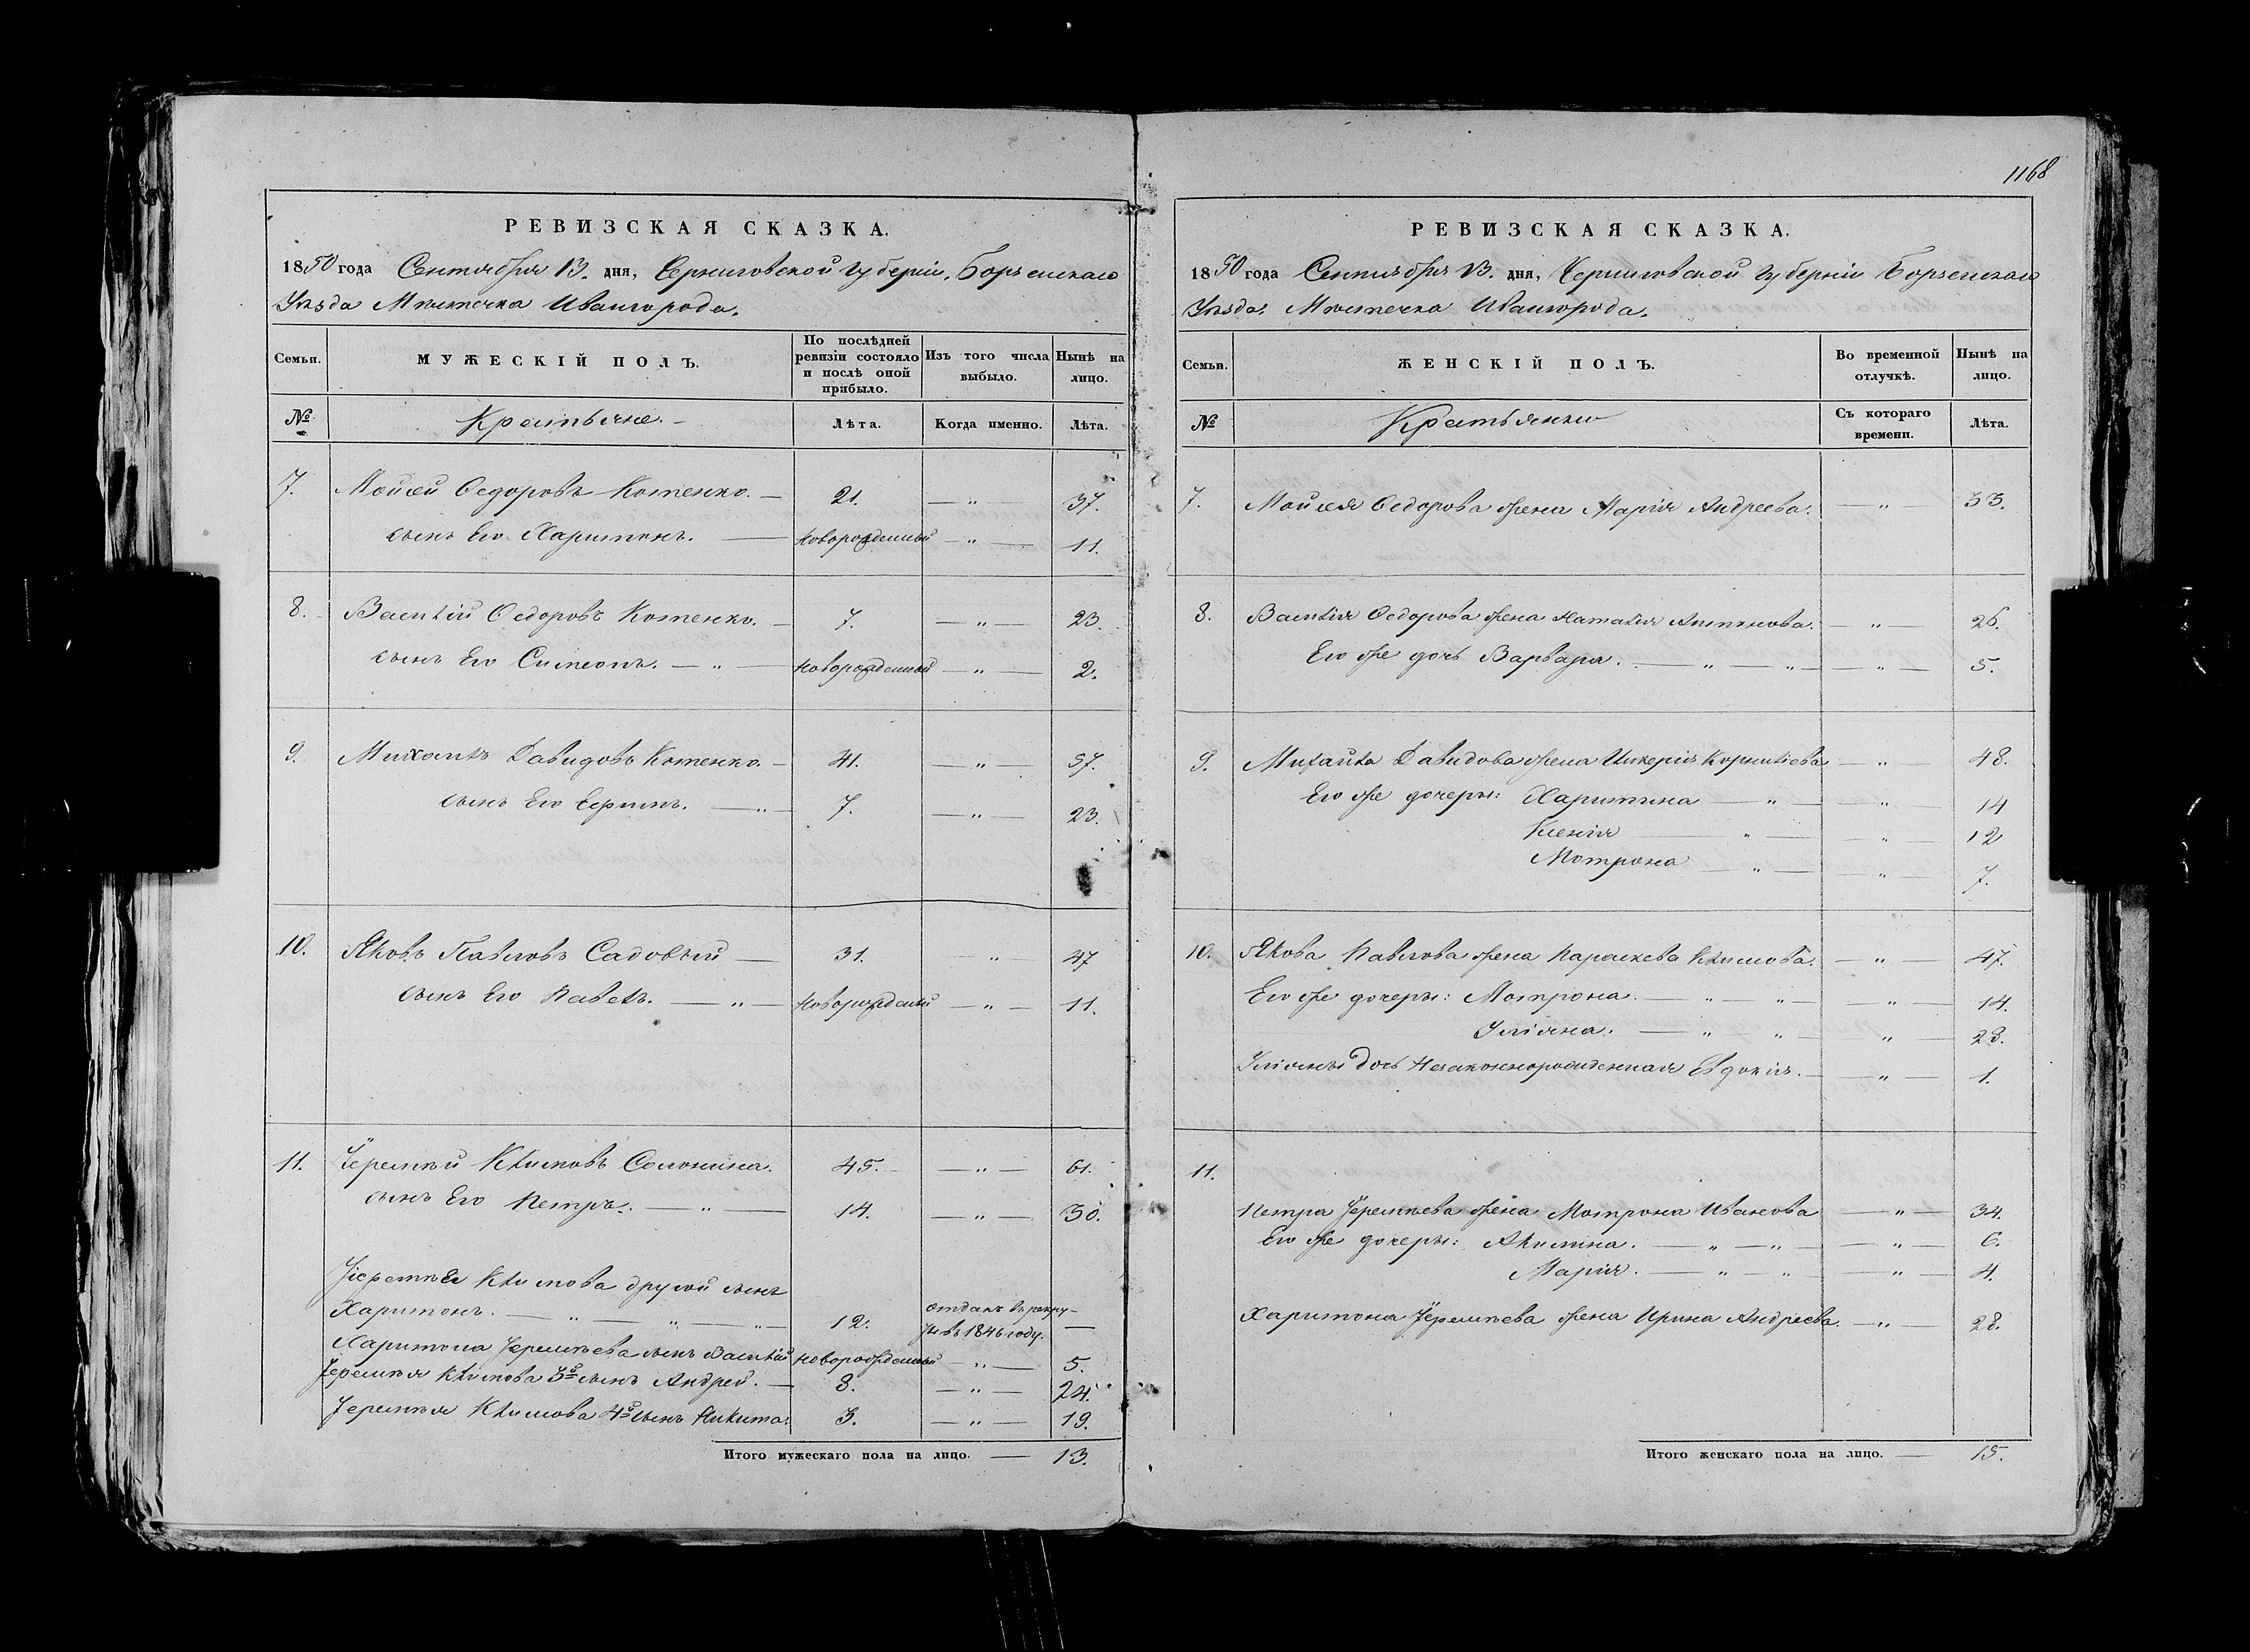 1168
РЕВИЗСКАЯ СКАЗКА.
1850 года Сентября 13. дня, Черниговской губерніи, Борзенскаго
Уѣзда Мѣстечка Ивангорода.
Семьи. МУЖЕСКІЙ ПОЛЪ. По послѣдней ревизіи состояло и послѣ оной прибыло. Изъ того числа выбыло. Нынѣ на лицо.
№ Крестьяне. Лѣта. Когда именно. Лѣта.
7. Мойсей Ѳедоровъ Котенко. — 21. — „ — 37.
сынъ Его Харитонъ. — Новорожденный — „ — 11.
8. Василій Ѳедоровъ Котенко. — 7. — „ — 23.
сынъ Его Симеонъ. — „ — Новорожденный — „ — 2.
9. Михаилъ Давидовъ Котенко. — 41. — „ — 57.
сынъ Его Ефимъ. — „ — 7. — „ — 23.
10. Яковъ Павловъ Садовый — 31. — „ — 47
сынъ Его Павелъ. — „ — Новорожденый — „ — 11.
11. Іеремѣй Климовъ Солонина. 45. — „ — 61.
сынъ Его Петръ. — „ — 14. — „ — 30.
Іеремѣя Климова другой сынъ
Харитонъ. — „ — „ — „ — 12. отданъ въ рекру-
ты въ 1846 году. —
Харитона Іеремѣева сынъ Василій Новорожденный — „ — 5.
Іеремѣя Климова 3й сынъ Андрей. — 8. — „ — 24.
Іеремѣя Климова 4й сынъ Никита. 3. — „ — 19.
Итого мужескаго пола на лицо. — 13.
РЕВИЗСКАЯ СКАЗКА.
1850 года Сентября 13. дня, Черниговской губерніи Борзенскаго
Уѣзда. Мѣстечка Ивангорода.
Семьи. ЖЕНСКІЙ ПОЛЪ. Во временной отлучкѣ. Нынѣ на лицо.
№ Крестьянки Съ котораго времени. Лѣта.
7. Мойсея Ѳедорова жена Марія Андреева. — „ — 33.
8. Василія Ѳедорова жена Наталія Антонова. — „ — 26.
Его же дочь Варвара. — „ — „ — „ — 5.
9. Михаила Давидова жена Гликерія Корниліева — „ — 48.
Его же дочеры: Харитина — „ — „ — 14
Ксенія — „ — „ — 12
Мотрона — „ — „ — 7.
10. Якова Павлова жена Параскева Климова. — „ — 47.
Его же дочеры: Мотрона. — „ — „ — „ — 14.
Уліяна. — „ — „ — „ — 23.
Уліяны дочь Незаконнорожденная Евдокія. — „ — 1.
11.
Петра Іеремѣева жена Мотрона Иванова — „ — 34.
Его же дочеры: Акилина. — „ — „ — „ — 6.
Марія. — „ — „ — „ — 4.
Харитона Іеремѣева жена Ирина Андреева. — „ — 28.
Итого женскаго пола на лицо. — 15.